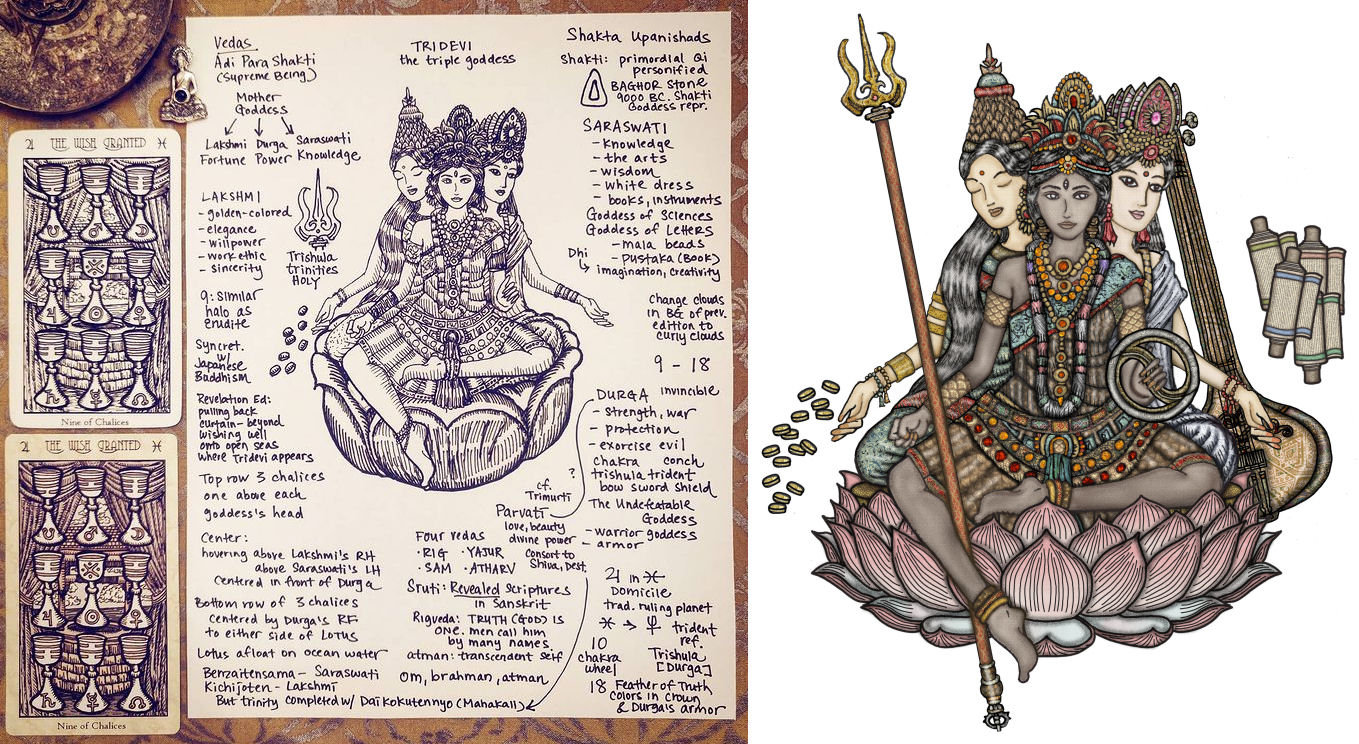 ♃ THE WISH GRANTED ♓
Nine of Chalices
♃ THE WISH GRANTED ♓
Nine of Chalices
Vedas
Adi Para Shakti
(Supreme Being)
Mother
Goddess
Lakshmi Durga Saraswati
Fortune Power Knowledge
LAKSHMI
- golden-colored
- elegance
- willpower
- work ethic
- sincerity
Trishula
trinities
HOLY
9: similar
halo as
erudite
Syncret.
w/
Japanese
Buddhism
Revelation Ed:
pulling back
curtain - beyond
wishing well
onto open seas
where Tridevi appears
Top row 3 chalices
one above each
goddess's head
Center:
hovering above Lakshmi's RH
above Saraswati's LH
Centered in front of Durga
Bottom row of 3 chalices
centered by Durga's RF
to either side of Lotus
Lotus afloat on ocean water
Benzaitensama - Saraswati
Kichijoten - Lakshmi
But trinity completed w/ Daikokutennyo (Mahakali)
TRIDEVI
the triple goddess
Four vedas
· RIG · YAJUR
· SAM · ATHARV
Sruti: Revealed Scriptures
in Sanskrit
Rigveda: TRUTH (GOD) IS
ONE. men call him
by many names.
atman: transcendent self
Om, brahman, atman
?
cf.
Trimurti
Parvati
love, beauty
divine power
Consort to
Shiva, Dest.
Shakta Upanishads
Shakti: primordial Qi
personified
BAGHOR Stone
9000 BC. Shakti
Goddess repr.
SARASWATI
- Knowledge
- the arts
- wisdom
- white dress
- books, instruments
Goddess of Sciences
Goddess of Letters
- mala beads
- pustaka (book)
Dhi
imagination, creativity
Change clouds
in BG of prev.
edition to
curly clouds
9 - 18
DURGA invincible
- strength, war
- protection
- exorcise evil
Chakra conch
trishula trident
bow sword shield
The Undefeatable
Goddess
- warrior goddess
- armor
♃ in ♓
Domicile
trad. ruling planet
♓ → ♆ trident
ref.
Trishula
[Durga]
10
chakra
wheel
18 Feather of Truth
Colors in Crown
& Durga's armor